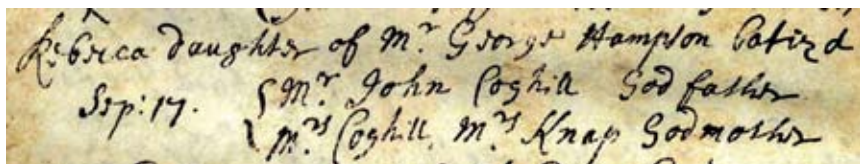 Rebecca daughter of Mr. George Hampson batiz'd
Sep: 17. { Mr. John Coghill Godfather
{ Mrs Coghill, Mrs Knap Godmother